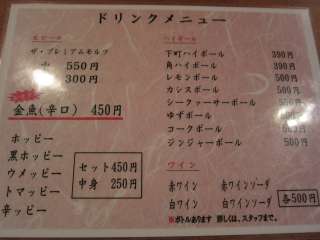 ドリンクメニュー
生ビール
ザ・プレミアムモルツ
中 550円
300円
金魚(辛口) 450円
ホッピー
黒ホッピー
ウメッピー
トマッピー
辛ッピー
セット450円
中身 250円
ハイボール
下町ハイボール 390円
角ハイボール 390円
レモンボール
カシスボール
シークァーサーボール
ゆずボール
コークボール
ジンジャーボール
500円
ワイン
赤ワイン 赤ワインソーダ
白ワイン 白ワインソーダ
各500円
※ボトルあります 詳しくは、スタッフまで。